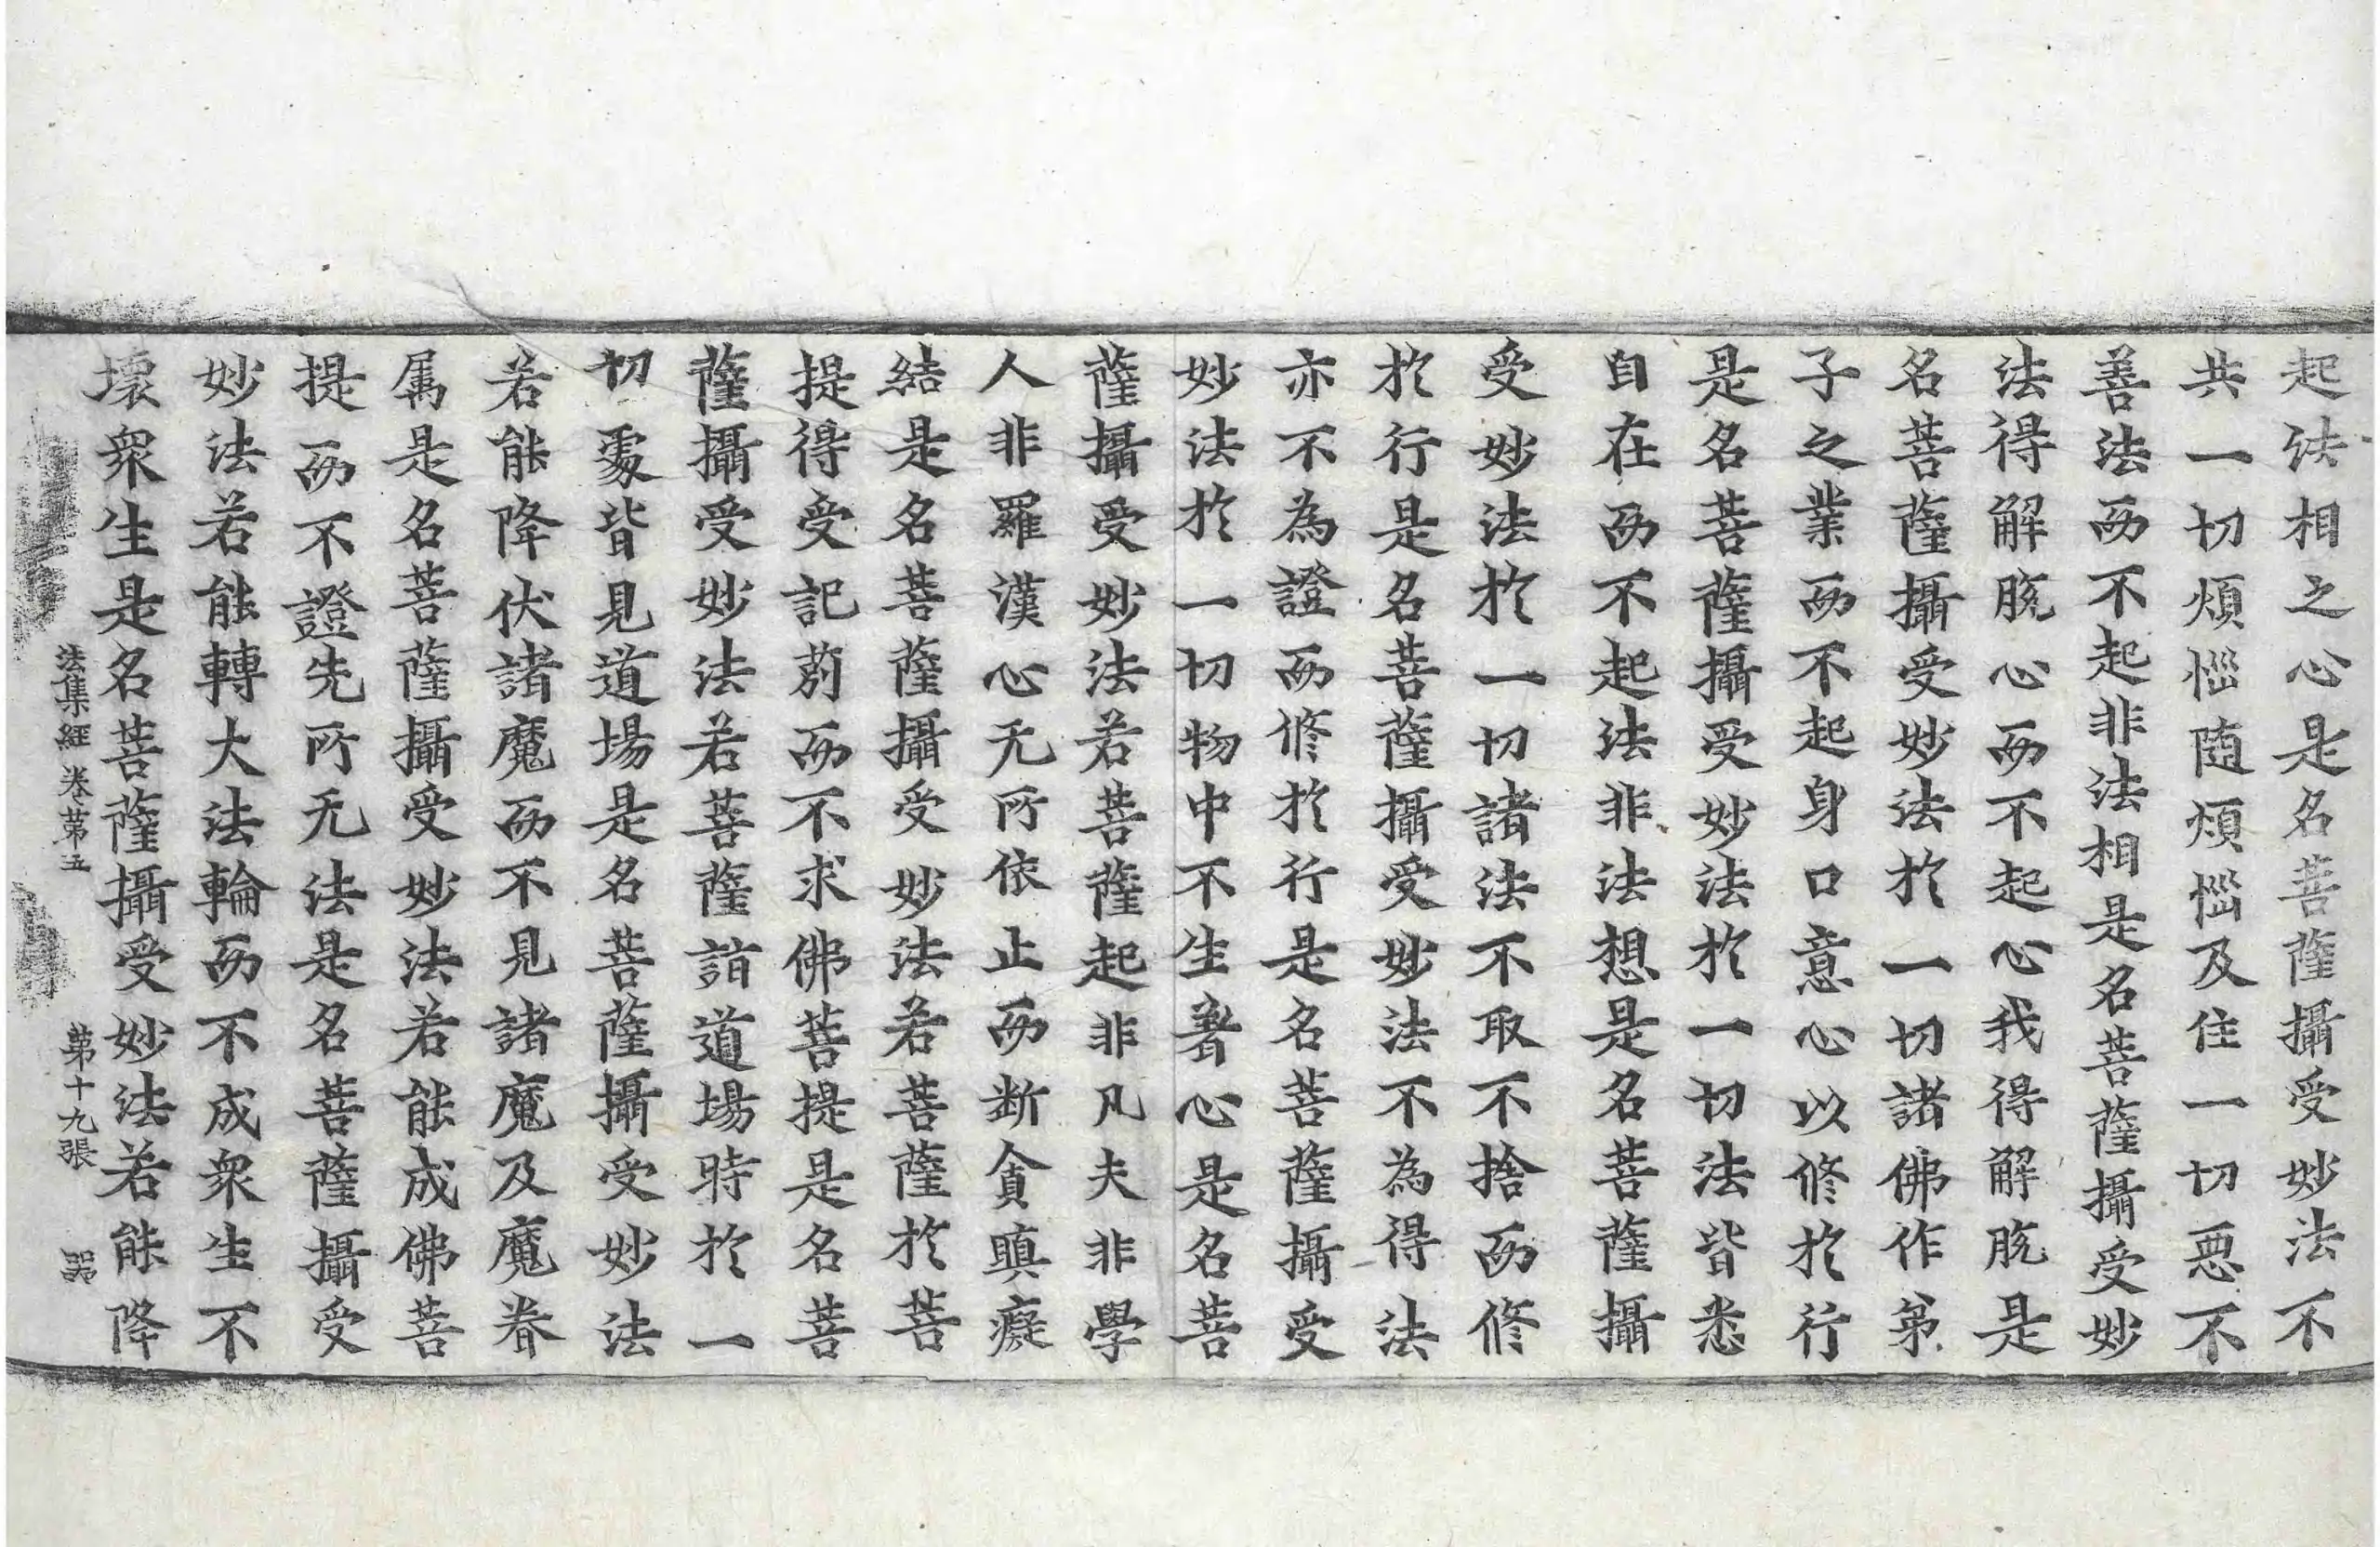 起法相之心是名菩薩攝受妙法不
共一切煩惱随煩惱及住一切惡不
善法而不起非法相是名菩薩攝受妙
法得解脫心而不起心我得解脫是
名菩薩攝受妙法於一切諸佛作弟
子之業而不起身口意心以修於行
是名菩薩攝受妙法於一切法皆悉
自在而不起法非法想是名菩薩攝
受妙法於一切諸法不取不捨而修
於行是名菩薩攝受妙法不為得法
亦不為證而修於行是名菩薩攝受
妙法於一切物中不生著心是名菩
薩攝受妙法若菩薩起非凡夫非學
人非羅漢心无所依止而断貪瞋癡
結是名菩薩攝受妙法若菩薩於菩
提得受記莂而不求佛菩提是名菩
薩攝受妙法若菩薩詣道場時於一
切處皆見道場是名菩薩攝受妙法
若能降伏諸魔而不見諸魔及魔眷
属是名菩薩攝受妙法若能成佛菩
提而不證先所无法是名菩薩攝受
妙法若能轉大法輪而不成衆生不
壞衆生是名菩薩攝受妙法若能降
法集經卷第五 第十九張 器